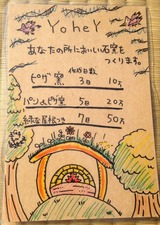 YoheY
あなたの所においしい石窯を
つくります。
作成日数
ピザ窯 3日 10万
パン&ピザ窯 5日 20万
緑化屋根つき 7日 50万